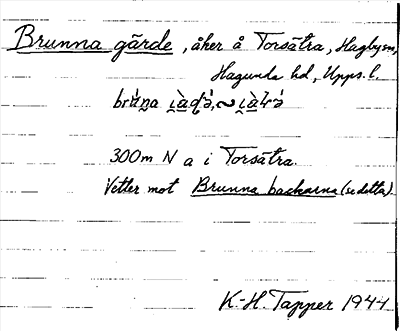 Brunna gärde, åker å Torsätra, Hagby sn,
Hagunda hd, Upps. l.
300m N a i Torsätra.
Vetter mot Brunna backarna (se detta).
K-H. Tapper 1944